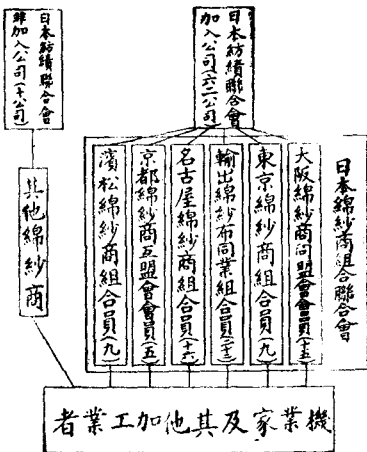 日本紡績聯合會
加入公司(六二公司)
日本紡績聯合會
非加入公司(十公司)
日本綿紗商組合聯合會
大阪綿紗商同盟會會員(十五)
東京綿紗商組合員(九)
輸出綿紗布同業組合員
名古屋綿紗商組合員(十六)
京都綿紗商互盟會會員(五)
濱松綿紗商組合員(九)
其他綿紗商
機業家及其他加工業者